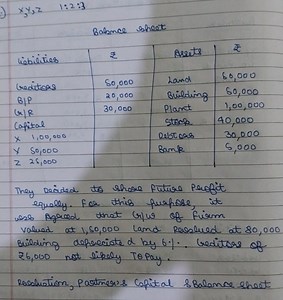 X,Y,Z 1:2:3
Balance sheet
Liabilities ₹ Assets ₹
Creditors 50,000 Land 60,000
B/P 20,000 Building 50,000
G/R 30,000 Plant 1,00,000
Capital Stock 40,000
X 1,00,000 Debtors 30,000
Y 50,000 Bank 5,000
Z 25,000
They Decided to Share Future Profit
equally. For this purpose, it
was Agreed that G/w of firm
valued at 1,50,000 Land Revalued at 80,000
Building depreciated by 6%. Creditors of
₹6,000 not likely To Pay.
Revaluation, Partner's Capital & Balance sheet